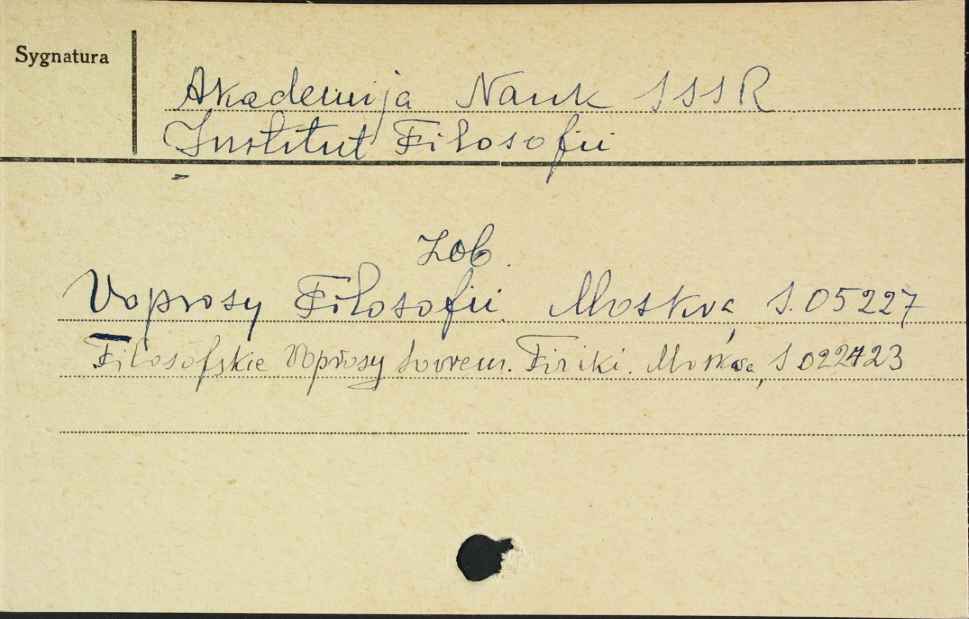 Sygnatura
Akademija Nauk SSSR
Institut Filosofii
Zob.
Voprosy Filosofii. Moskva, S.05227
Filosofskie Voprosy Sovrem. Fiziki. Moskva, S 022423